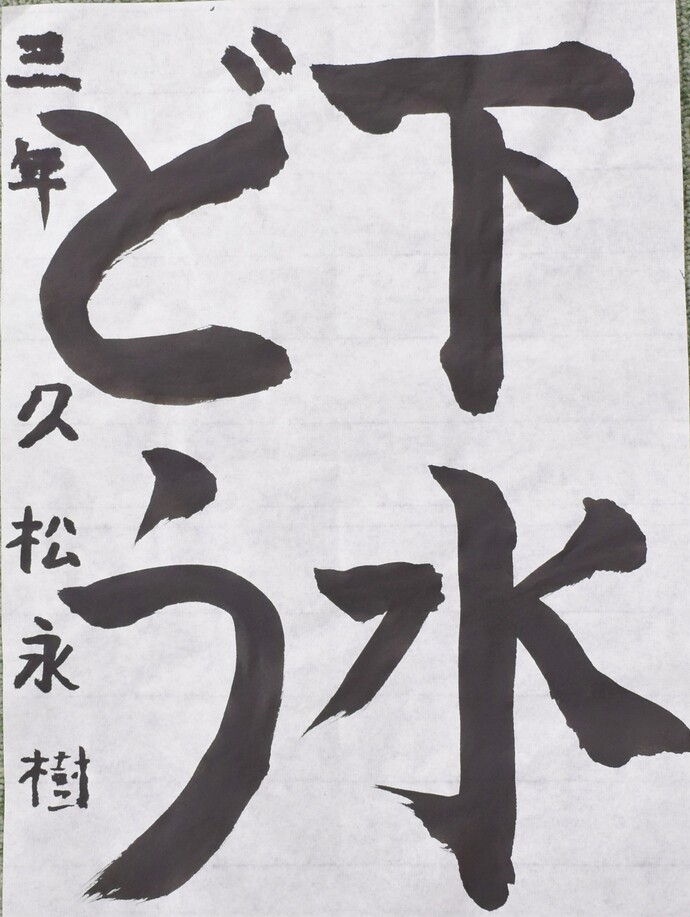 下水
どう
三年 久松永樹